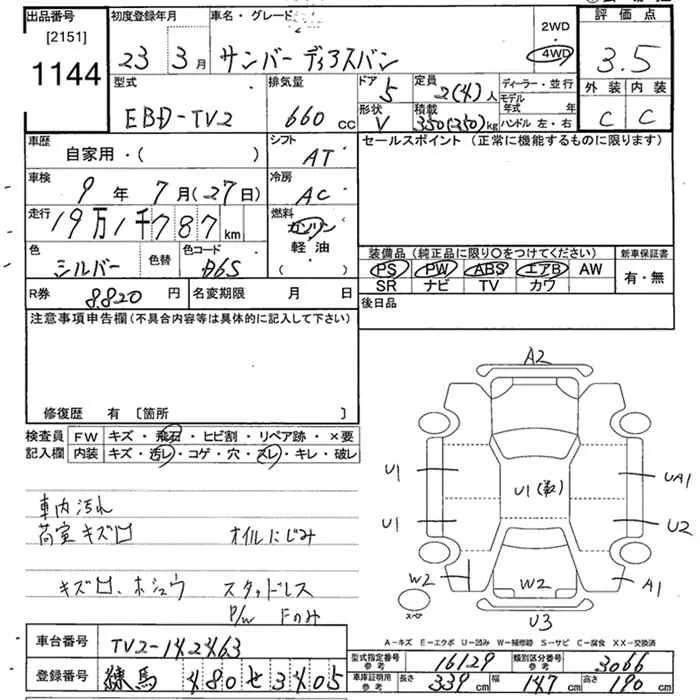 出品番号
[2151]
1144
初度登録年月
23 3月
車名・グレード
サンバーディアスバン
2WD
・
4WD
評価点
3.5
外装 内装
C C
型式
EBD-TV2
排気量
660 cc
ドア
5
定員
2(4)人
形状
V
積載
350(250)kg
ディーラー・並行
モデル年式 年
ハンドル 左・右
車歴
自家用・( )
シフト
AT
セールスポイント (正常に機能するものに限ります)
車検
9年 7月(27日)
冷房
AC
走行
19万1千787km
燃料
ガソリン
軽・油
( )
色
シルバー
色替
色コード
D6S
装備品 (純正品に限り○をつけてください)
PS PW ABS エアB AW
SR ナビ TV カワ
新車保証書
有・無
R券
8820円
名変期限 月 日
後日品
注意事項申告欄 (不具合内容等は具体的に記入して下さい)
修復歴 有 [箇所 ]
検査員
記入欄
FW キズ・飛石・ヒビ割・リペア跡・×要
内装 キズ・汚レ・コゲ・穴・スレ・キレ・破レ
車内汚れ
荷室キズ凹 オイルにじみ
キズ凹、ホシュウ スタッドレス
P/W Fのみ
A2
U1
U1
U1
UA1
U2
W2
W2
A1
U3
スペア
A-キズ E-エクボ U-凹み W-補修跡 S-サビ C-腐食 XX-交換済
車台番号
TV2-142463
登録番号
練馬 480 せ 3405
型式指定番号
参考
16129
類別区分番号
参考
3066
車庫証明用
参考
長さ 339cm 幅 147cm 高さ 190cm